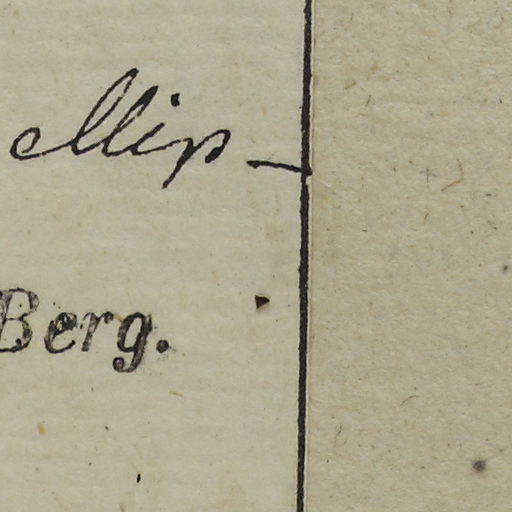 ellip-
Berg.